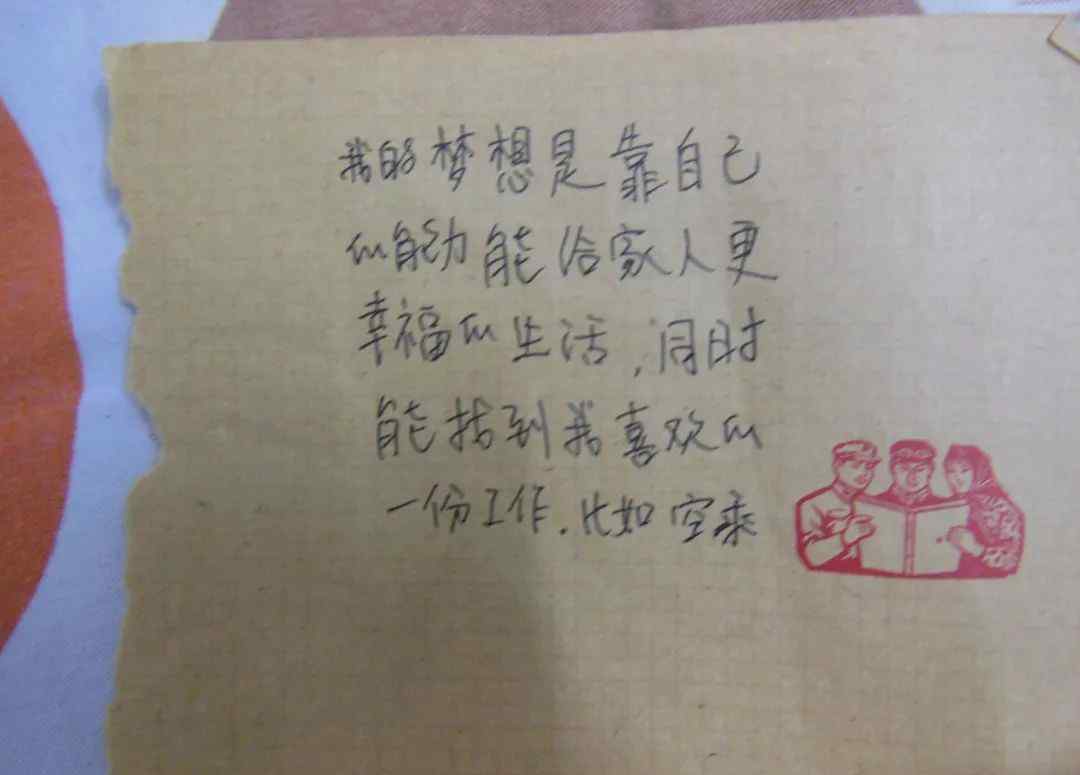 我的梦想是靠自己
的能力能给家人更
幸福的生活,同时
能找到我喜欢的
一份工作.比如空乘